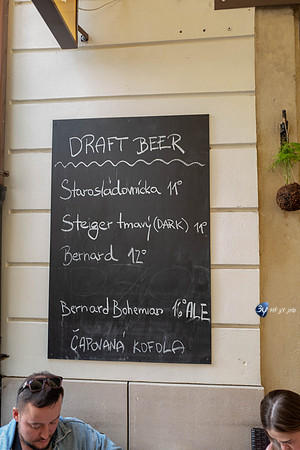 DRAFT BEER
Starosládovnícka 11°
Steiger tmavý (DARK) 11°
Bernard 12°
Bernard Bohemian 16° ALE
ČAPOVANÁ KOFOLA